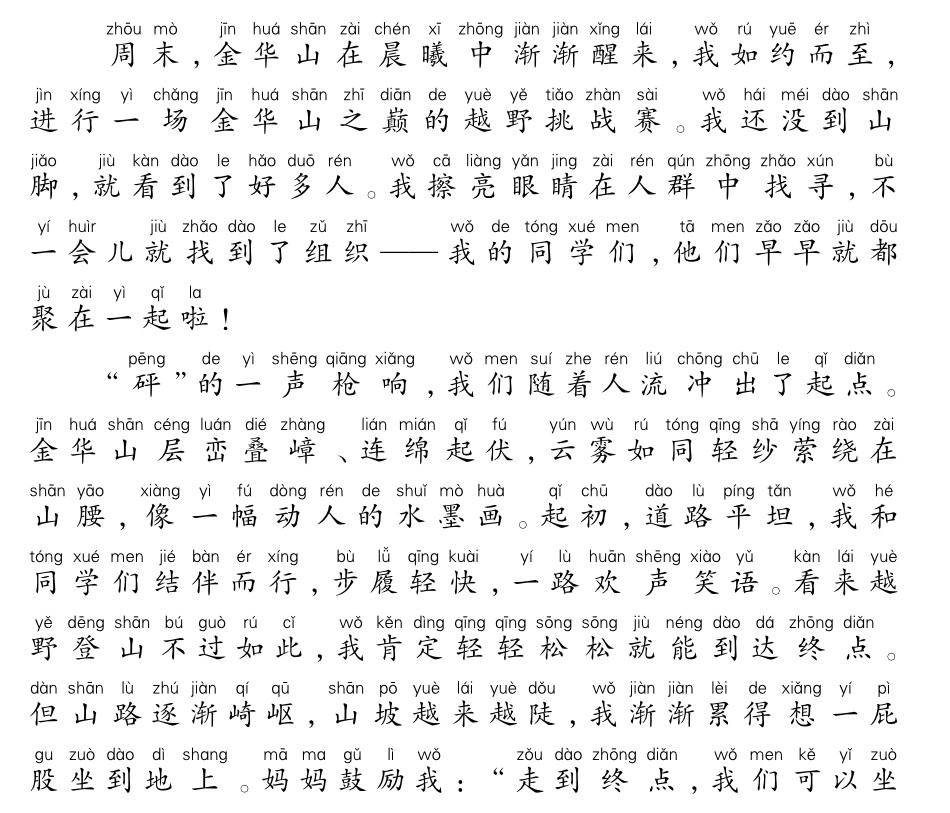 zhōu mò jīn huá shān zài chén xī zhōng jiàn jiàn xǐng lái wǒ rú yuē ér zhì
周末，金华山在晨曦中渐渐醒来，我如约而至，
jìn xíng yì chǎng jīn huá shān zhī diān de yuè yě tiǎo zhàn sài wǒ hái méi dào shān
进行一场金华山之巅的越野挑战赛。我还没到山
jiǎo jiù kàn dào le hǎo duō rén wǒ cā liàng yǎn jing zài rén qún zhōng zhǎo xún bù
脚，就看到了好多人。我擦亮眼睛在人群中找寻，不
yí huìr jiù zhǎo dào le zǔ zhī wǒ de tóng xué men tā men zǎo zǎo jiù dōu
一会儿就找到了组织——我的同学们，他们早早就都
jù zài yì qǐ la
聚在一起啦！
pēng de yì shēng qiāng xiǎng wǒ men suí zhe rén liú chōng chū le qǐ diǎn
“砰”的一声枪响，我们随着人流冲出了起点。
jīn huá shān céng luán dié zhàng lián mián qǐ fú yún wù rú tóng qīng shā yíng rào zài
金华山层峦叠嶂、连绵起伏，云雾如同轻纱萦绕在
shān yāo xiàng yì fú dòng rén de shuǐ mò huà qǐ chū dào lù píng tǎn wǒ hé
山腰，像一幅动人的水墨画。起初，道路平坦，我和
tóng xué men jié bàn ér xíng bù lǚ qīng kuài yí lù huān shēng xiào yǔ kàn lái yuè
同学们结伴而行，步履轻快，一路欢声笑语。看来越
yě dēng shān bú guò rú cǐ wǒ kěn dìng qīng qīng sōng sōng jiù néng dào dá zhōng diǎn
野登山不过如此，我肯定轻轻松松就能到达终点。
dàn shān lù zhú jiàn qí qū shān pō yuè lái yuè dǒu wǒ jiàn jiàn lèi de xiǎng yí pì
但山路逐渐崎岖，山坡越来越陡，我渐渐累得想一屁
gu zuò dào dì shang mā ma gǔ lì wǒ zǒu dào zhōng diǎn wǒ men kě yǐ zuò
股坐到地上。妈妈鼓励我：“走到终点，我们可以坐